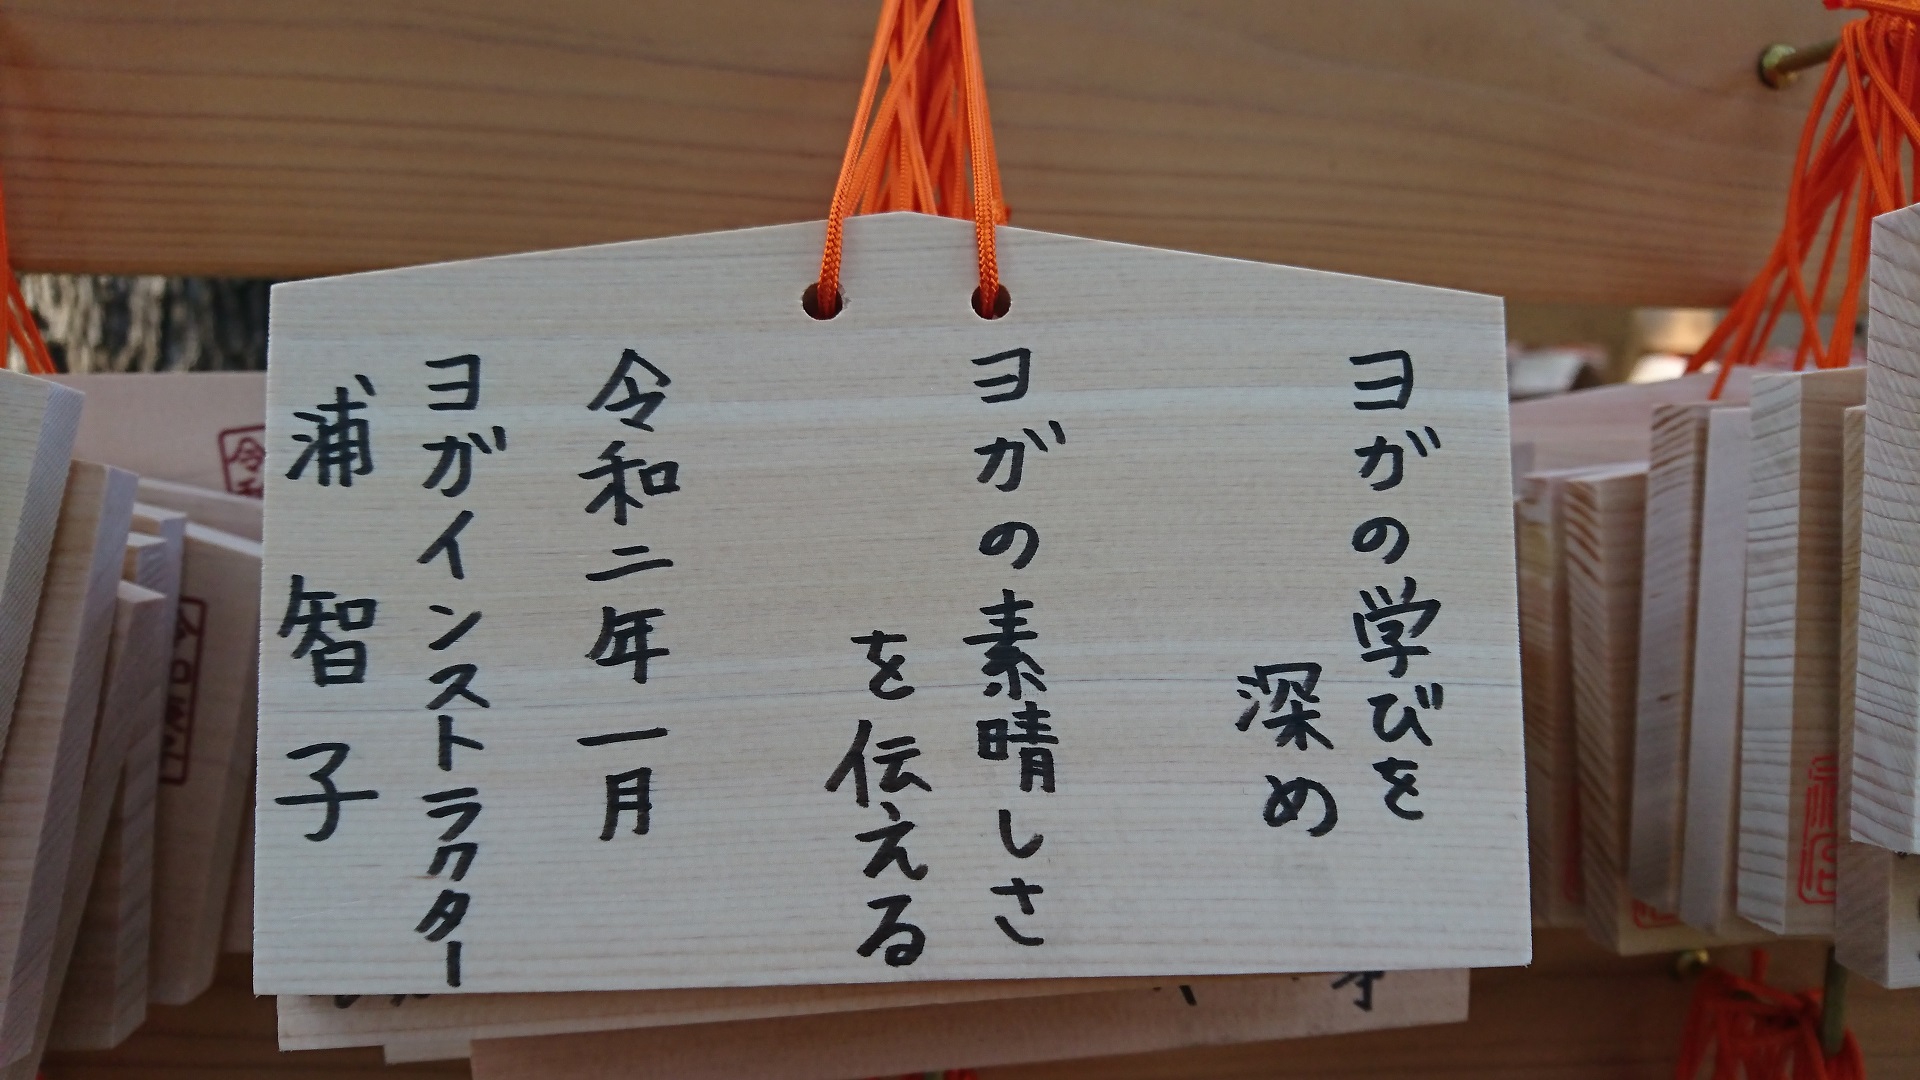 ヨガの学びを
深め
ヨガの素晴しさ
を伝える
令和二年一月
ヨガインストラクター
浦智子